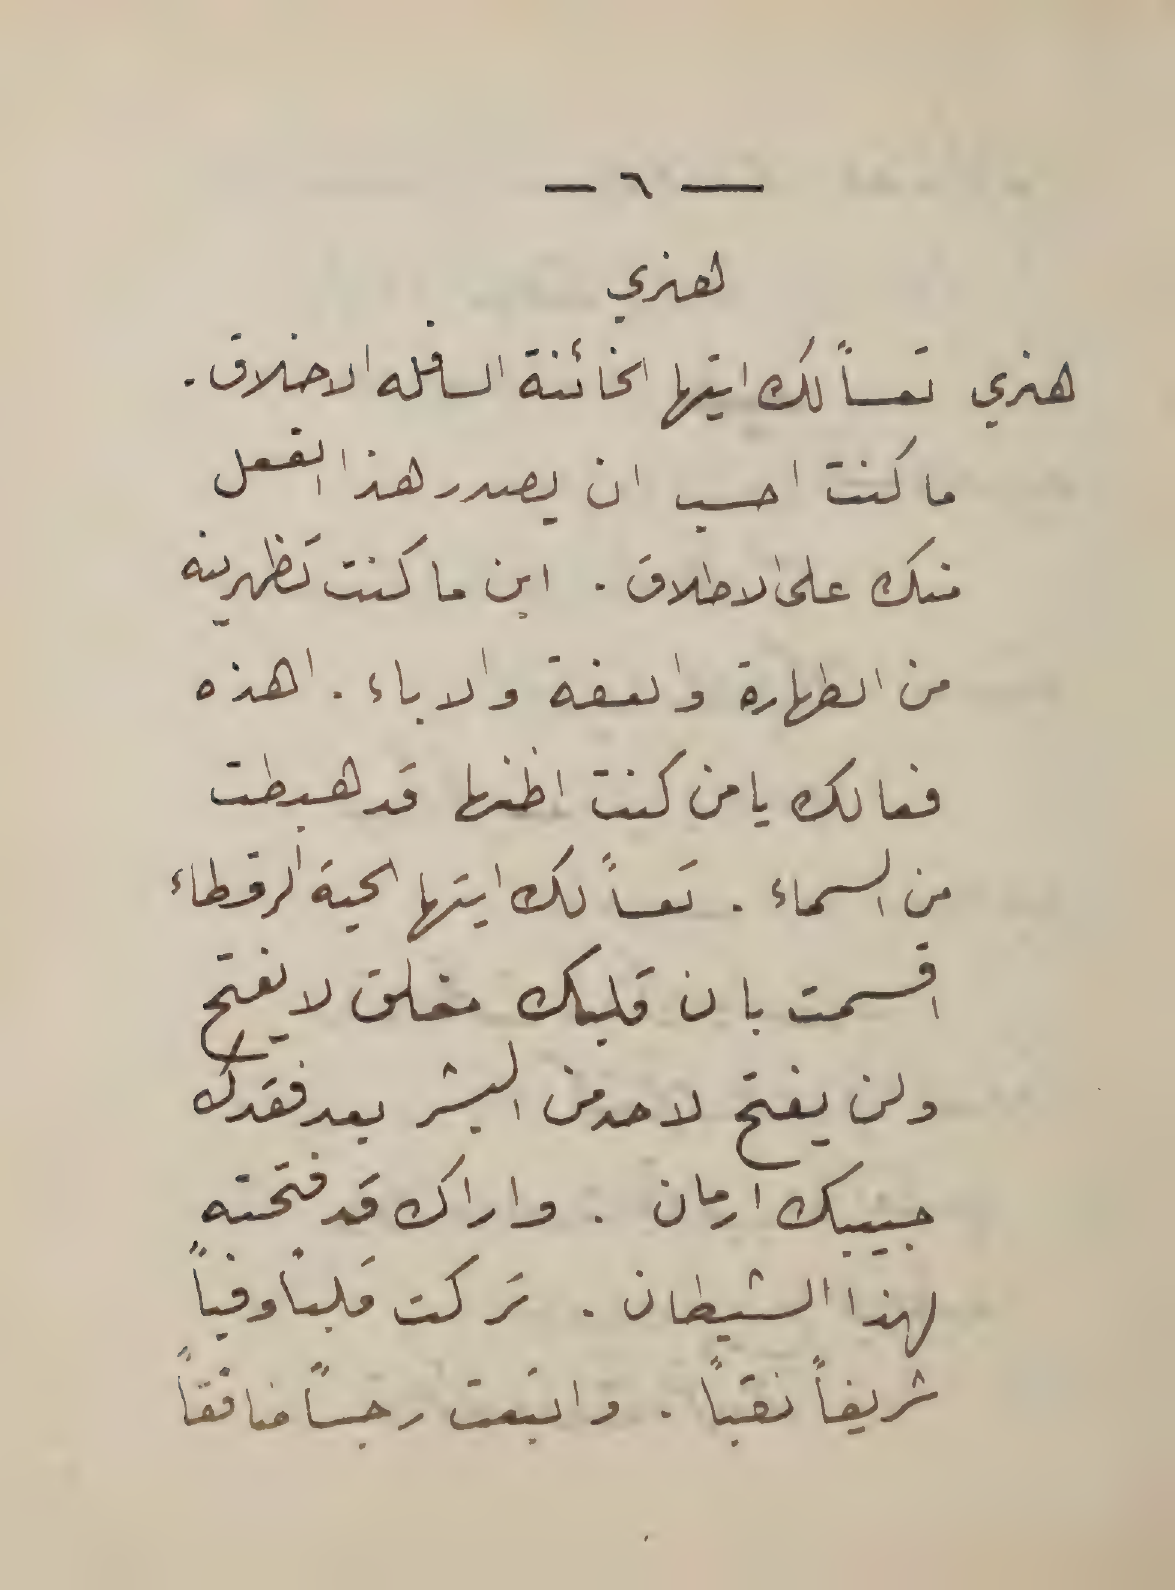 — ٦ —
لهنري
هنري تعساً لك ايتها الخائنة السافله الاخلاق .
ما كنت احسب ان يصدر هذا الفعل
منك على الاطلاق . اين ما كنت تظهرينه
من الطهارة والعفة والاباء . اهذه
فعالك يا من كنت اظنها قد هبطت
من السماء . تعساً لك ايتها الحية الرقطاء
اقسمت بان قلبك مغلق لا يفتح
ولن يفتح لاحد من البشر بعد فقدك
حبيبك ارمان . واراك قد فتحته
لهذا الشيطان . تركت قلباً وفياً
شريفاً نقياً . واتبعت رجساً منافقاً